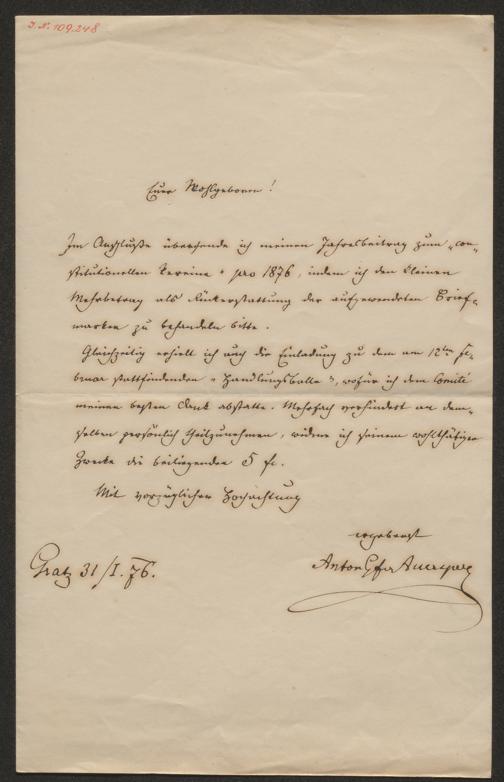 I. N. 109.248
Euer Wohlgeboren!
Im Anschluße übersende ich meinen Jahresbeitrag zum „con-
stitutionellen Vereine“ pro 1876, indem ich den kleinen
Mehrbetrag als Rückerstattung der aufgewendeten Brief-
marken zu behandeln bitte.
Gleichzeitig erhielt ich auch die Einladung zu dem am 12ten Fe-
bruar stattfindenden „Handlungsballe“, wofür ich dem Comité
meinen besten Dank abstatte. Mehrfach verhindert an dem-
selben persönlich theilzunehmen, widme ich seinem wohlthätigen
Zwecke die beiliegenden 5 fl.
Mit vorzüglicher Hochachtung
ergebenst
Anton Auersperg
Gratz 31/I. 76.